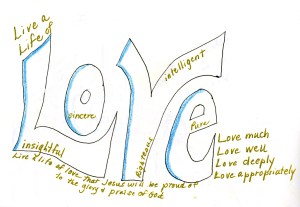 Live a
Life of
LOVE
insightful
sincere
intelligent
Righteous
Pure
Love much
Love well
Love deeply
Love appropriately
Live a life of love that Jesus will be proud of
to the glory & praise of God